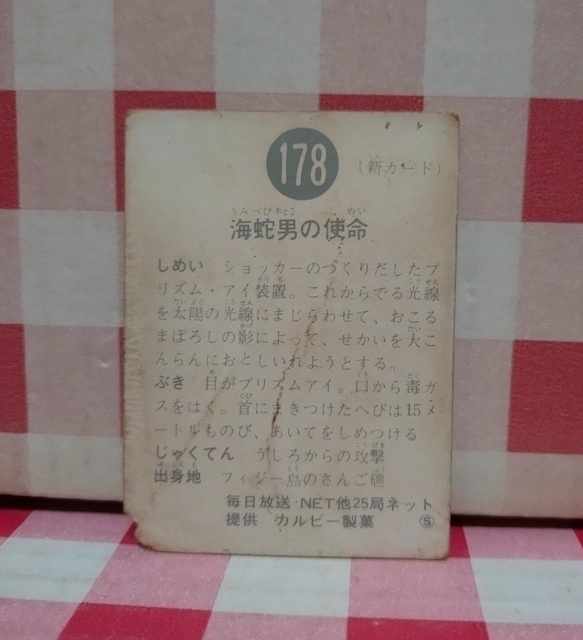 178
(新カード)
海蛇男の使命
しめい ショッカーのつくりだしたプ
リズム・アイ装置。これからでる光線
を太陽の光線にまじらわせて、おこる
まぼろしの影によって、せかいを大こ
んらんにおとしいれようとする。
ぶき 目がプリズムアイ。口から毒ガ
スをはく。首にまきつけたへびは15メ
ートルものび、あいてをしめつける
じゃくてん うしろからの攻撃
出身地 フィジー島のさんご礁
毎日放送・NET他25局ネット
提供 カルビー製菓 Ⓢ